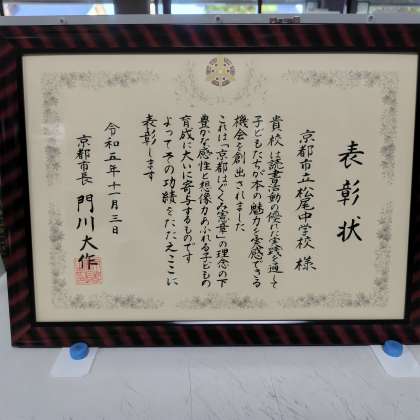 表彰状
京都市立松尾中学校 様
貴校は読書活動の優れた実践を通して
子どもたちが本の魅力を実感できる
機会を創出されました
これは「京都はぐくみ憲章」の理念の下
豊かな感性と想像力あふれる子どもの
育成に大いに寄与するものです
よってその功績をたたえここに
表彰します
令和五年十一月三日
京都市長 門川大作